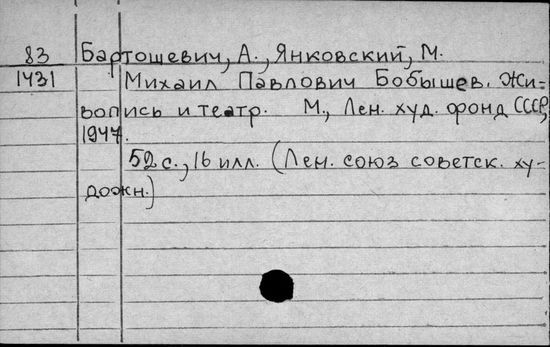 83 Бартошевич, А., Янковский, М.
1431 Михаил Павлович Бобышев. Жи-
вопись и театр. М., Лен. худ. фонд СССР,
1947.
52 с., 16 илл. (Лен. союз советск. ху-
дожн.)